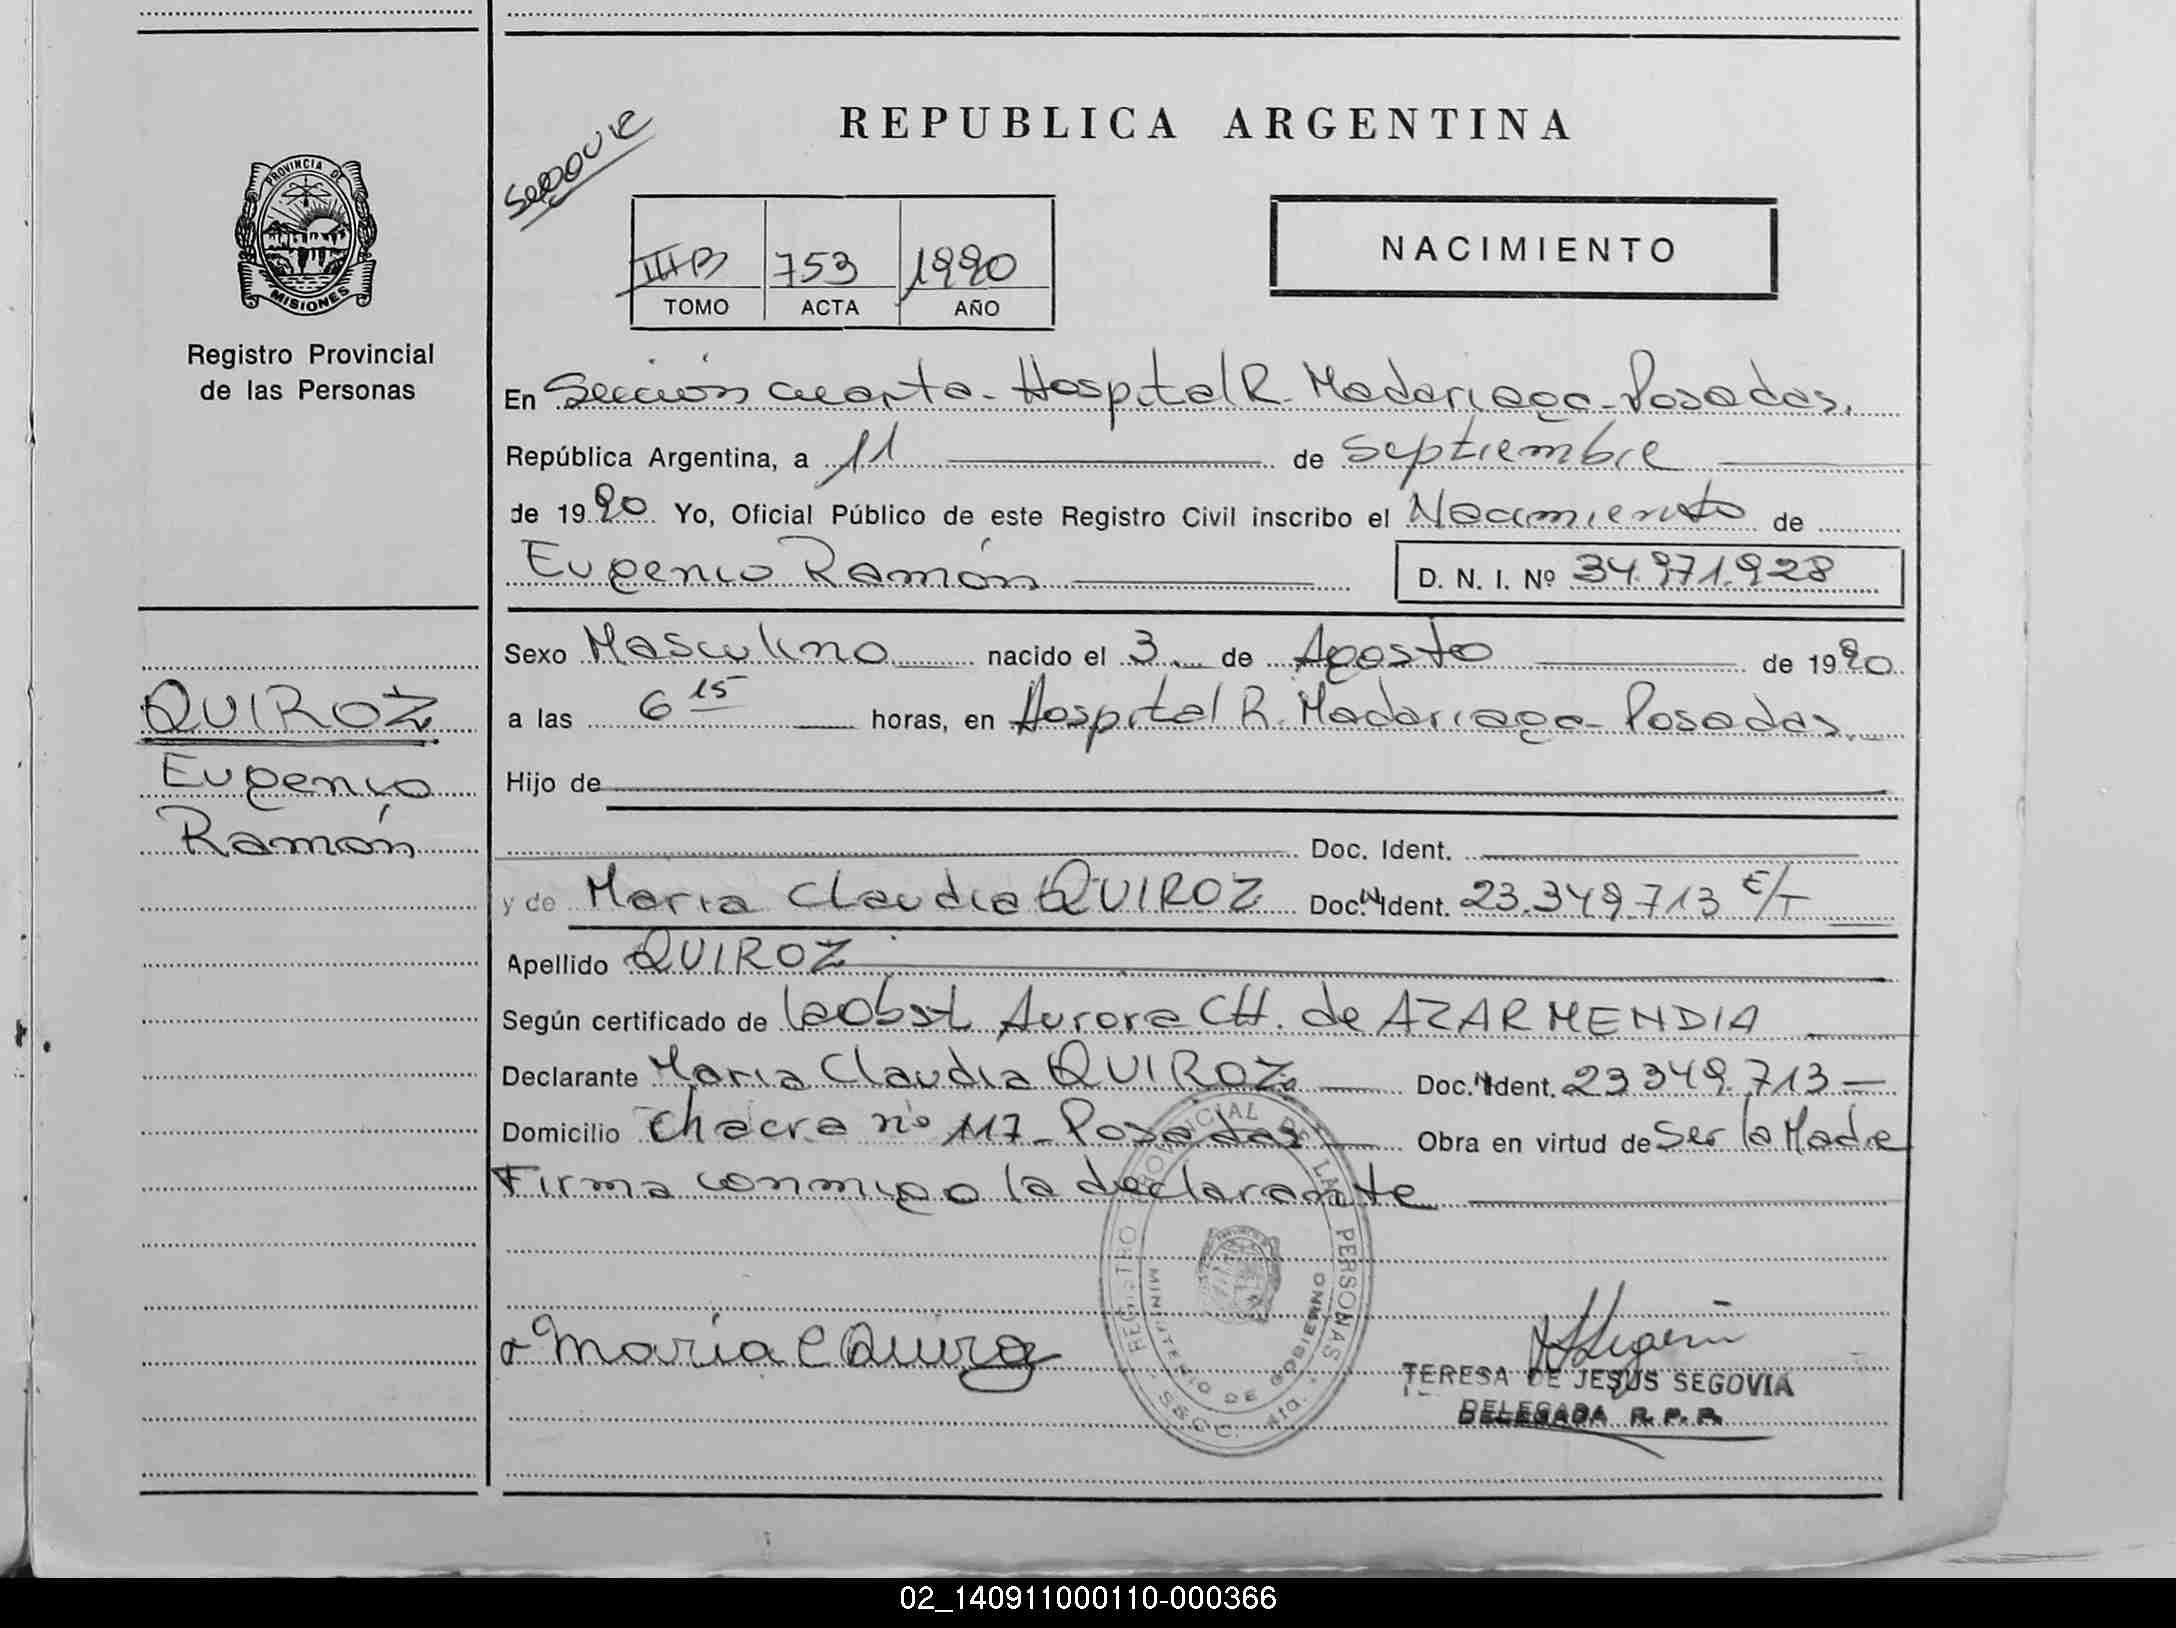 REPUBLICA ARGENTINA
PROVINCIA DE
MISIONES
Registro Provincial
de las Personas
IIIB 753 1990
TOMO ACTA AÑO
NACIMIENTO
En Sección cuarta - Hospital R. Madariaga - Posadas.
República Argentina, a 11 de Septiembre
de 1990 Yo, Oficial Público de este Registro Civil inscribo el Nacimiento de
Eugenio Ramón D. N. I. Nº 34.971.928
Sexo Masculino nacido el 3 de Agosto de 1990
QUIROZ
Eugenio
Ramón
a las 6 15 horas, en Hospital R. Madariaga - Posadas.
Hijo de
Doc. Ident.
y de Maria Claudia QUIROZ Doc. Ident. 23.349.713 E/T
Apellido QUIROZ
Según certificado de la Obst Aurora CH. de AZARMENDIA
Declarante Maria Claudia QUIROZ Doc. Ident. 23.349.713
Domicilio Chacra nº 117 - Posadas Obra en virtud de Ser la Madre
Firma conmigo la declarante
REGISTRO PROVINCIAL DE LAS PERSONAS
MINISTERIO DE GOBIERNO
4ta.
Maria C Quiroz
TERESA DE JESUS SEGOVIA
DELEGADA R. P. P.
02_140911000110-000366